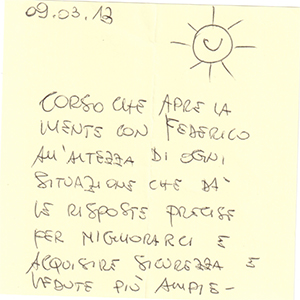 09.03.13
CORSO CHE APRE LA
MENTE CON FEDERICO
ALL'ALTEZZA DI OGNI
SITUAZIONE CHE DA'
LE RISPOSTE PRECISE
PER MIGLIORARCI E
ACQUISIRE SICUREZZA E
VEDUTE PIÙ AMPIE-